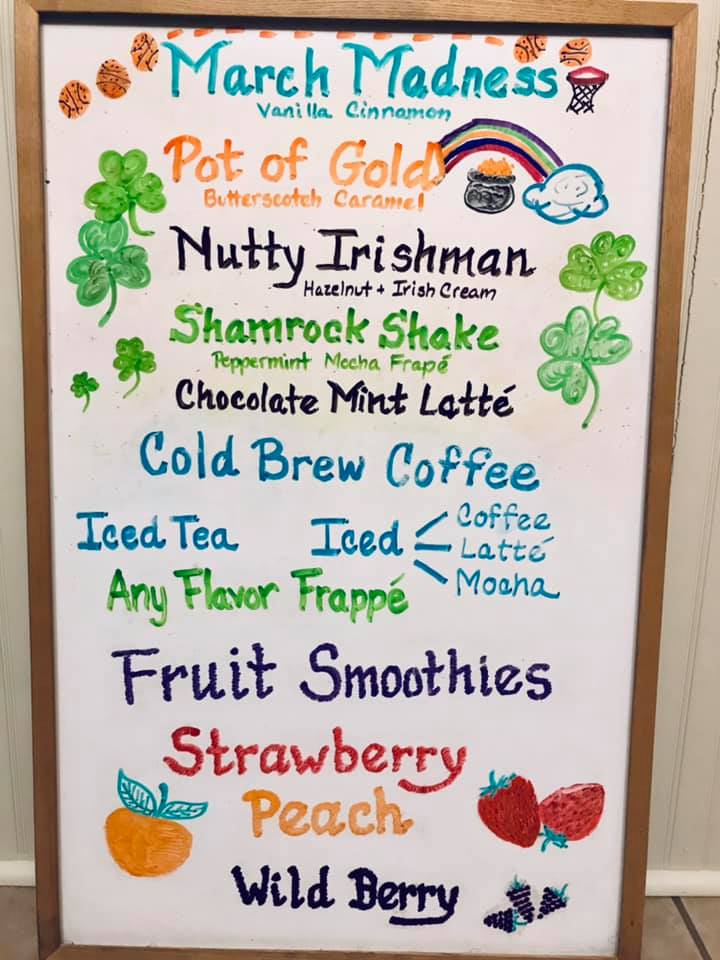 March Madness
Vanilla Cinnamon
Pot of Gold!
Butterscotch Caramel
Nutty Irishman
Hazelnut + Irish Cream
Shamrock Shake
Peppermint Mocha Frapé
Chocolate Mint Latté
Cold Brew Coffee
Iced Tea
Iced
Coffee
Latté
Mocha
Any Flavor Frappé
Fruit Smoothies
Strawberry
Peach
Wild Berry